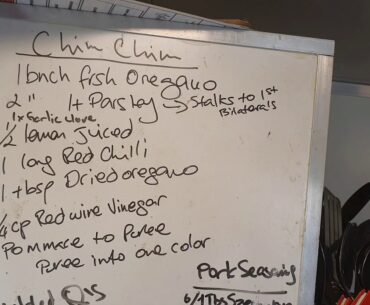 Chim Chim
1 bnch fish Oregano
2 " 1+ Parsley → Stalks to 1st Bilaterals
1x Garlic clove
1/2 lemon Juiced
1 long Red Chilli
1 tbsp Dried oregano
1/4 cp Red wine Vinegar
Pommace to Puree
Puree into one color
Pork Seasoning